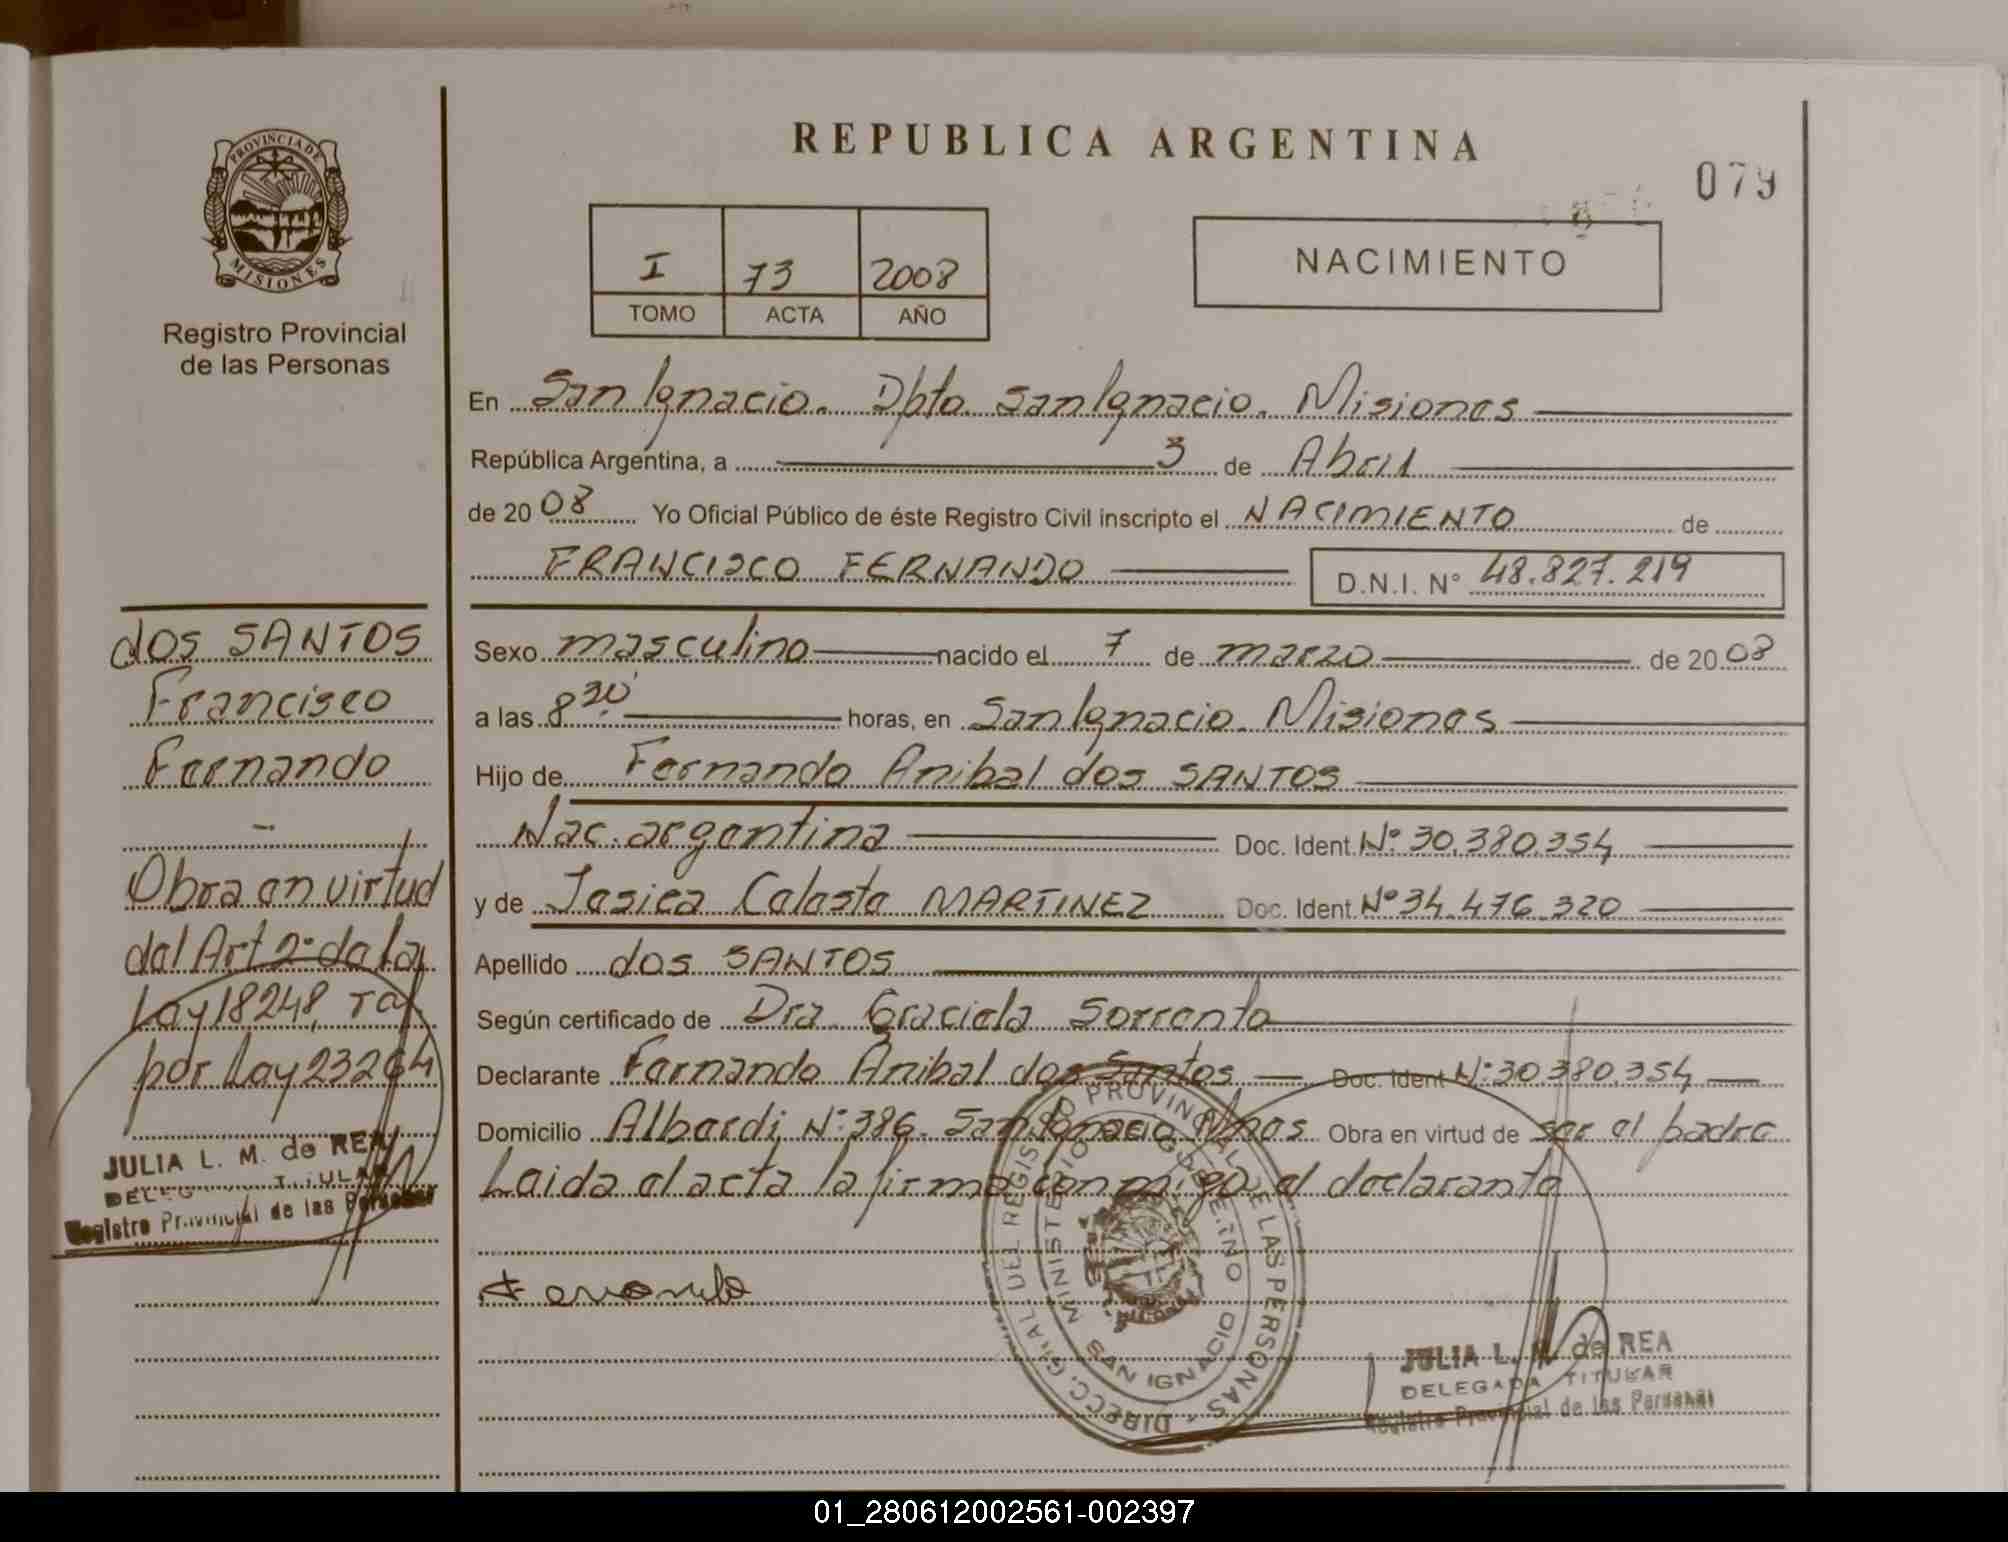 PROVINCIA DE
MISIONES
Registro Provincial
de las Personas
REPUBLICA ARGENTINA
079
I 73 2008
TOMO ACTA AÑO
NACIMIENTO
En San Ignacio. Dpto San Ignacio. Misiones
República Argentina, a 3 de Abril
de 2008 Yo Oficial Público de éste Registro Civil inscripto el NACIMIENTO de
FRANCISCO FERNANDO D.N.I. N° 48.827.219
Sexo masculino nacido el 7 de marzo de 2008
a las 8 30' horas, en San Ignacio. Misiones
Hijo de Fernando Anibal dos SANTOS
Nac. argentina Doc. Ident. N° 30.380.354
y de Jesica Celeste MARTINEZ Doc. Ident. N° 34.476.320
Apellido dos SANTOS
Según certificado de Dra. Graciela Sorrento
Declarante Fernando Anibal dos Santos Doc. Ident N° 30.380.354
Domicilio Alberdi N° 386. San Ignacio Mnes. Obra en virtud de ser el padre
Leida el acta la firma conmigo el declarante
Fernando
DIREC. GRAL DEL REGISTRO PROVINCIAL DE LAS PERSONAS
MINISTERIO DE GOBIERNO
SAN IGNACIO
JULIA L. M. de REA
DELEGADA TITULAR
Registro Provincial de las Personas
dos SANTOS
Francisco
Fernando
Obra en virtud
del Art 2° de la
Ley 18248, ref
por Ley 23264
JULIA L. M. de REA
DELEGADA TITULAR
Registro Provincial de las Personas
01_280612002561-002397